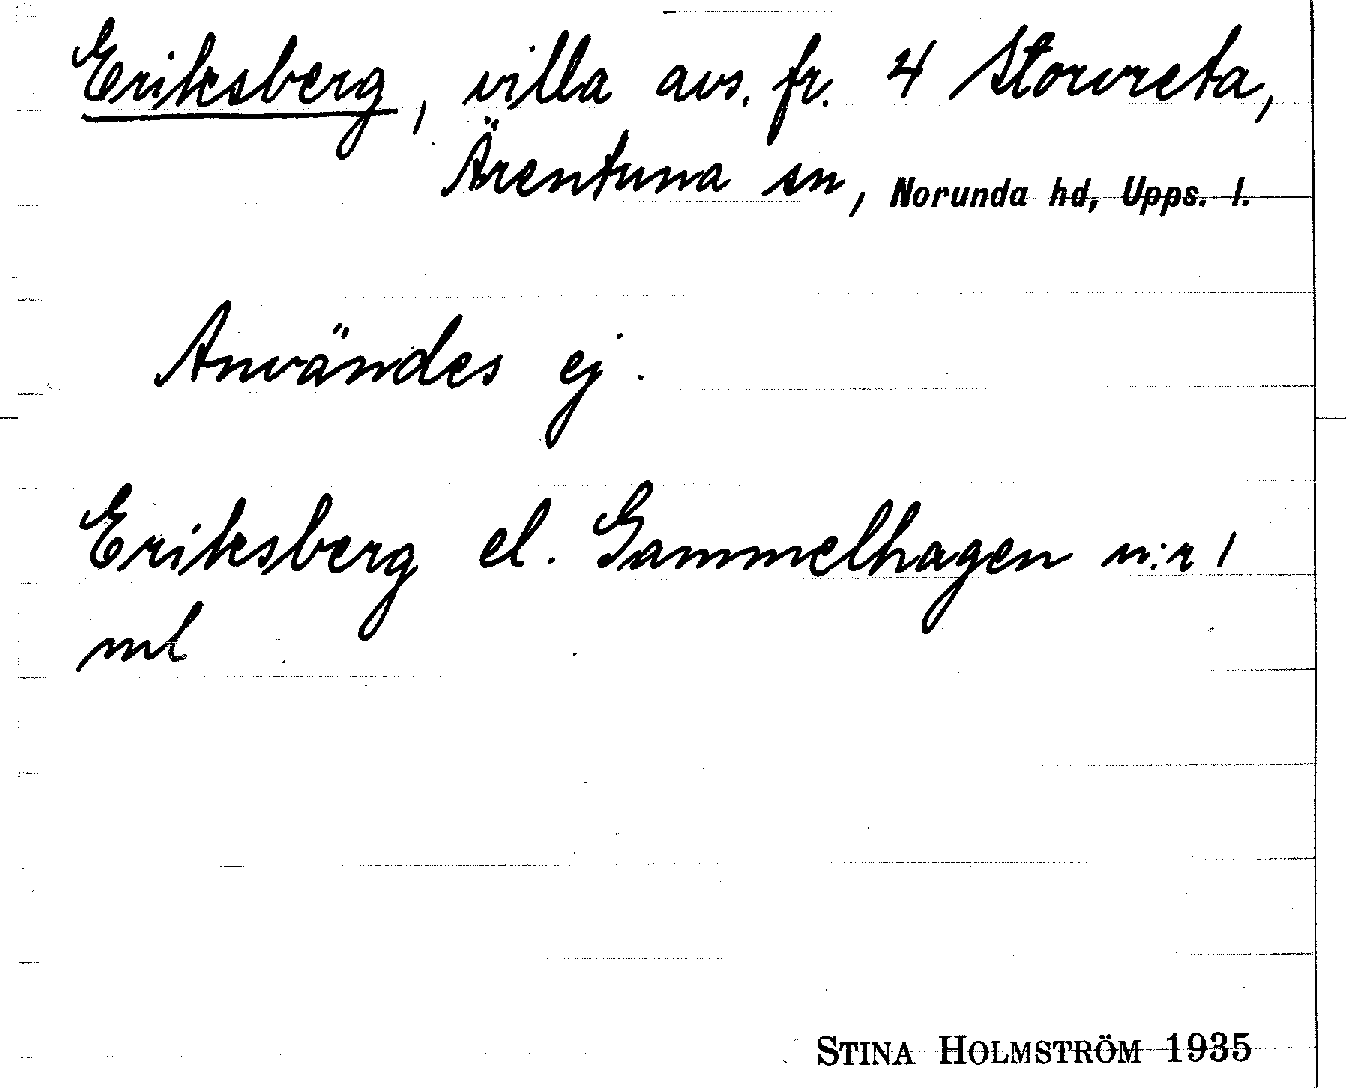 Eriksberg, villa avs. fr. 4 Storvreta,
Ärentuna sn, Norunda hd, Upps. l.
Användes ej.
Eriksberg el. Gammelhagen n:r 1
ml
STINA HOLMSTRÖM 1935